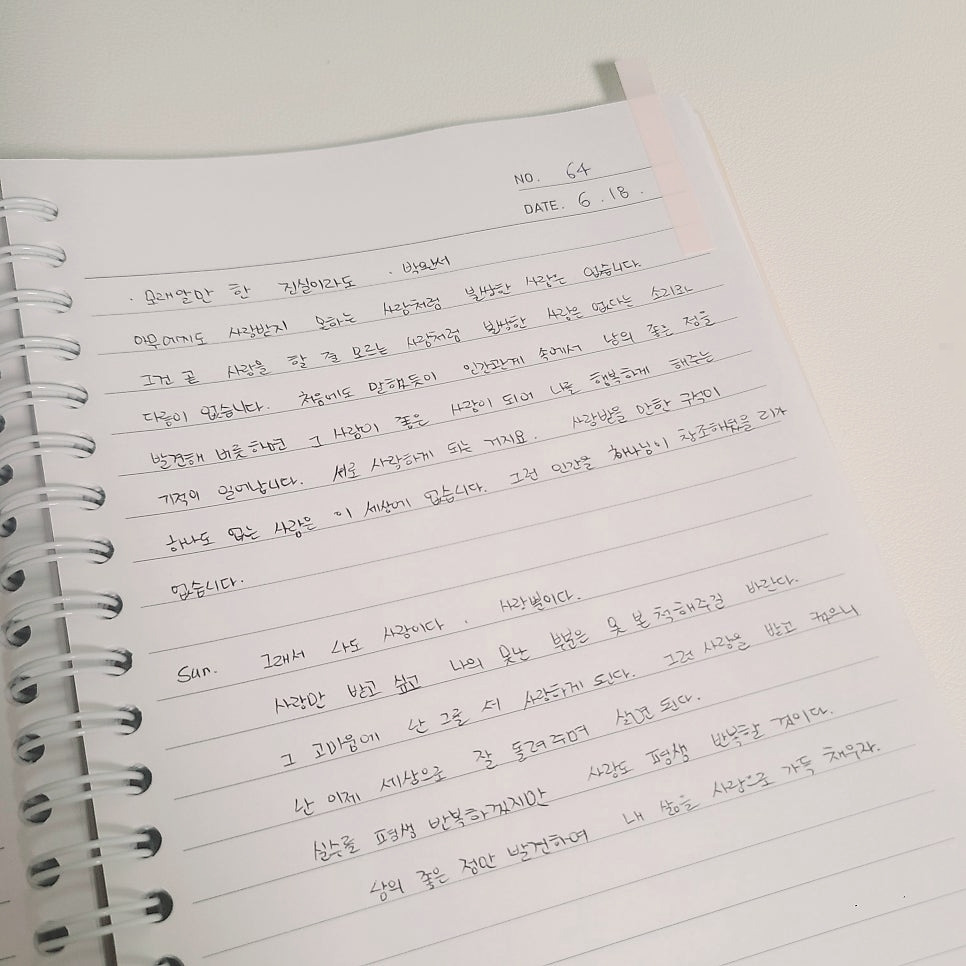 NO. 64
DATE. 6. 18.
· 모래알만 한 진실이라도 · 박완서
아무에게도 사랑받지 못하는 사람처럼 불쌍한 사람은 없습니다.
그건 곧 사랑을 할 줄 모르는 사람처럼 불쌍한 사람은 없다는 소리와
다름이 없습니다. 처음에도 말했듯이 인간관계 속에서 남의 좋은 점을
발견해 버릇하면 그 사람이 좋은 사람이 되어 나를 행복하게 해주는
기적이 일어납니다. 서로 사랑하게 되는 거지요. 사랑받을 만한 구석이
하나도 없는 사람은 이 세상에 없습니다. 그런 인간을 하나님이 창조하셨을 리가
없습니다.
Sun. 그래서 나도 사랑이다. 사랑별이다.
사랑만 받고 싶고 나의 못난 부분은 못 본 척해주길 바란다.
그 고마움에 난 그를 더 사랑하게 된다. 그런 사랑을 받고 컸으니
난 이제 세상으로 잘 돌려주며 살면 된다.
실수를 평생 반복하겠지만 사랑도 평생 반복할 것이다.
남의 좋은 점만 발견하여 내 삶을 사랑으로 가득 채우자.